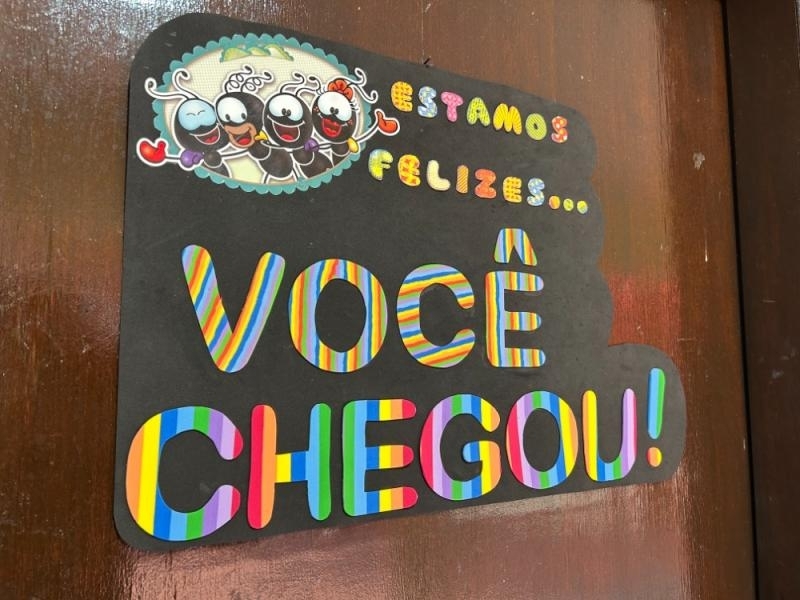 ESTAMOS
FELIZES...
VOCÊ
CHEGOU!